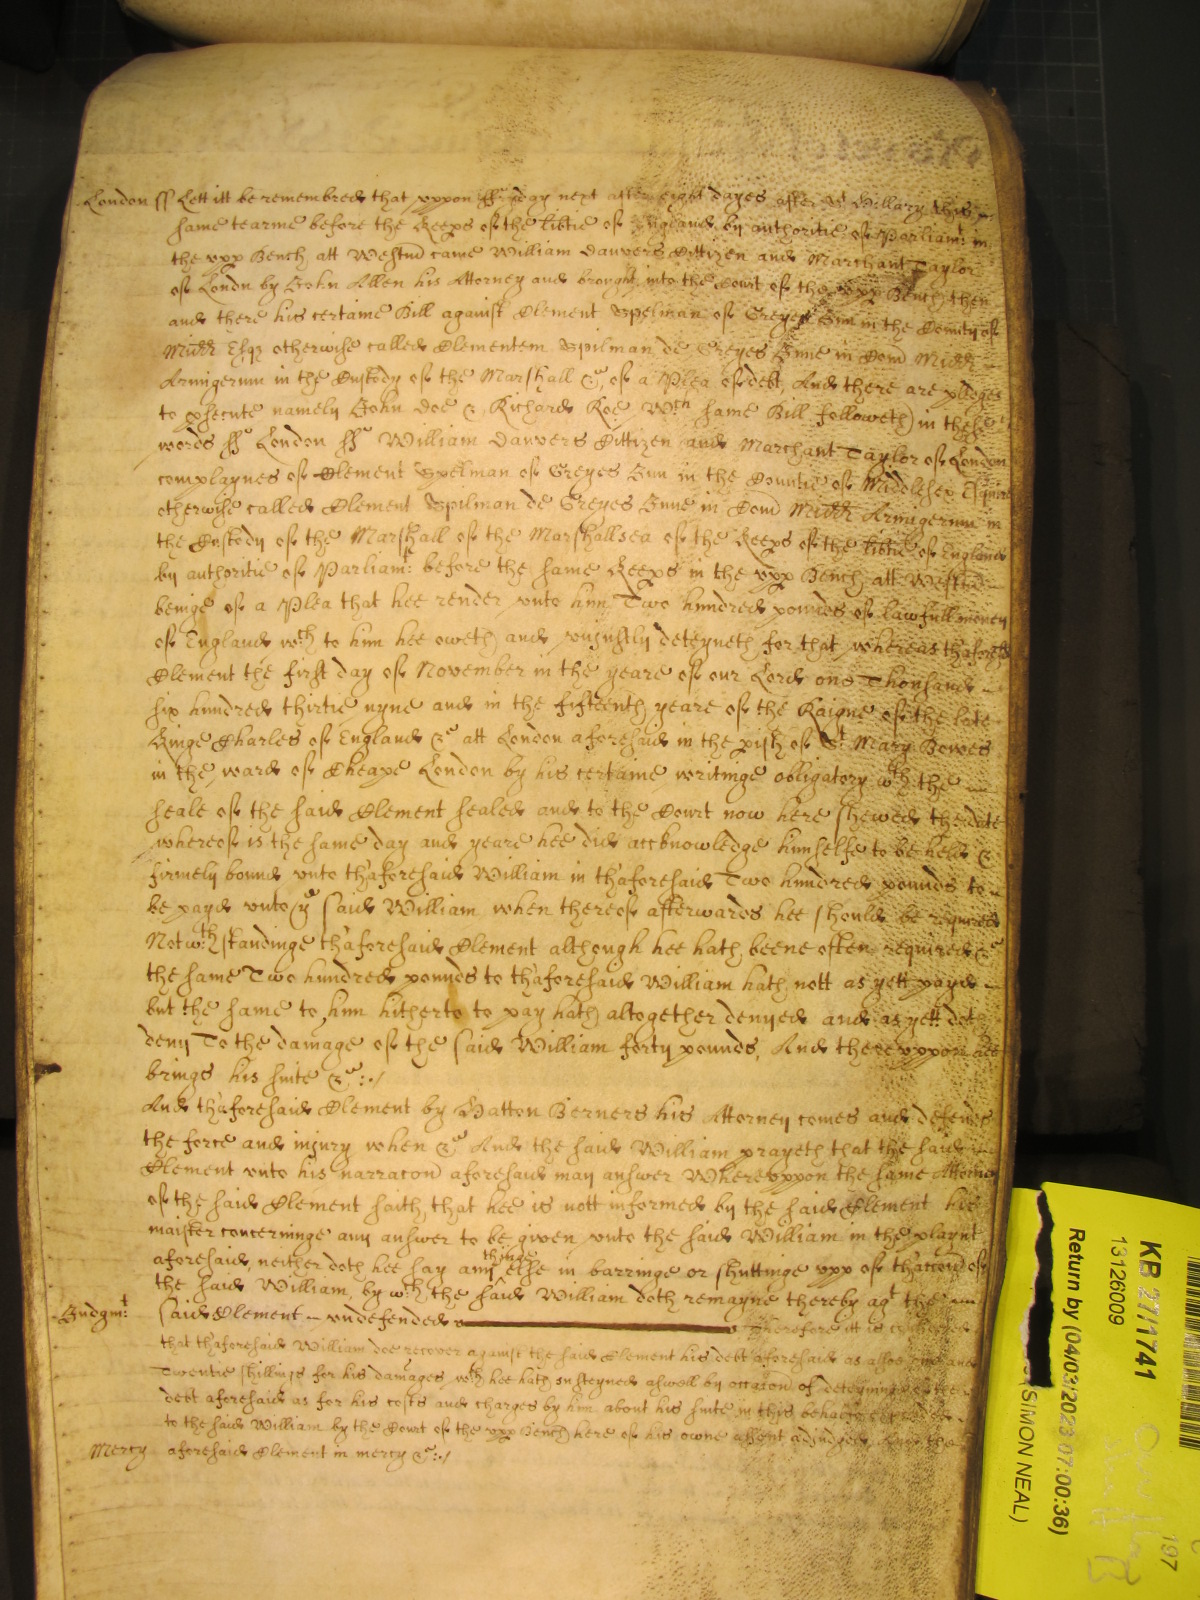 London ss Lett itt be remembred that vppon ffryday next after eight dayes after St Hillary this
same tearme before the Keeps of the libtie of England by authoritie of Parliamt: in
the vpp Bench att Westmr came William Dauvers Cittizen and Marchant Taylor
of Londn by John Allen his Attorney and brought into the Court of the vpp Bench then
and there his certaine Bill against Clement Spelman of Greyes Inn in the County of
Middx Esqz otherwise called Clementem Spilman de Greyes Inne in Com Middx
Armigerum in the Custody of the Marshall &c, of a Plea of debt, And there are pledges
to psecute namely John Doe & Richard Roe, Wch same Bill followeth in these
words ss London ss William Dauvers Cittizen and Marchant Taylor of London
complaynes of Clement Spelman of Greyes Inn in the Countie of Middlesex Esquire
otherwise called Clement Spilman de Greyes Inne in Com Middx Armigerum in
the Custody of the Marshall of the Marshallsea of the Keeps of the libtie of England
by authoritie of Parliamt: before the same Keeps in the vpp Bench att Westmr
beinge of a Plea that hee render vnto him Two hundred pounds of lawfull money
of England wch to him hee oweth and vnjustly deteyneth for that whereas thaforesd
Clement the first day of November in the yeare of our Lord one Thousand
six hundred thirtie nyne and in the fifteenth yeare of the Raigne of the late
Kinge Charles of England &c att London aforesaid in the pish of St Mary Bowes
in the ward of Cheape London by his certaine writinge obligatory wth the
seale of the said Clement sealed and to the Court now here shewed the date
whereof is the same day and yeare hee did accknowledge himselfe to be held &
firmely bound vnto thaforesaid William in thaforesaid Two hundred pounds to
be payd vnto ye said William when thereof afterwards hee should be required
Notwthstandinge thaforesaid Clement although hee hath beene often required &c
the same Two hundred pounds to thaforesaid William hath nott as yett payd
but the same to him hitherto to pay hath altogether denyed and as yett doth
deny To the damage of the said William forty pounds, And therevppon hee
brings his suite &c:./
And thaforesaid Clement by Hatton Berners his Attorney comes and defends
the force and injury when &c And the said William prayeth that the said
Clement vnto his narracon aforesaid may answer Wherevppon the same Attorney
of the said Clement saith, that hee is nott informed by the said Clement his
maister concerninge any answer to be given vnto the said William in the playnt
aforesaid, neither doth hee say any thinge else in barringe or shuttinge vpp of thaccon of
the said William, by wch the said William doth remayne thereby agt the
Judgmt said Clement – vndefended Therefore itt is considered
that thaforesaid William doe recover against the said Clement his debt aforesaid as alsoe one and
Twentie shillings for his damages wch hee hath susteyned aswell by occacon of deteyninge of the
debt aforesaid as for his costs and charges by him about his suite in this behalfe
to the said William by the Court of the vpp Bench here of his owne assent adjudged, And the
Mercy aforesaid Clement in mercy &c:./
KB 27/1741
13126009
Return by (04/03/2023 07:00:36)
SIMON NEAL)
197